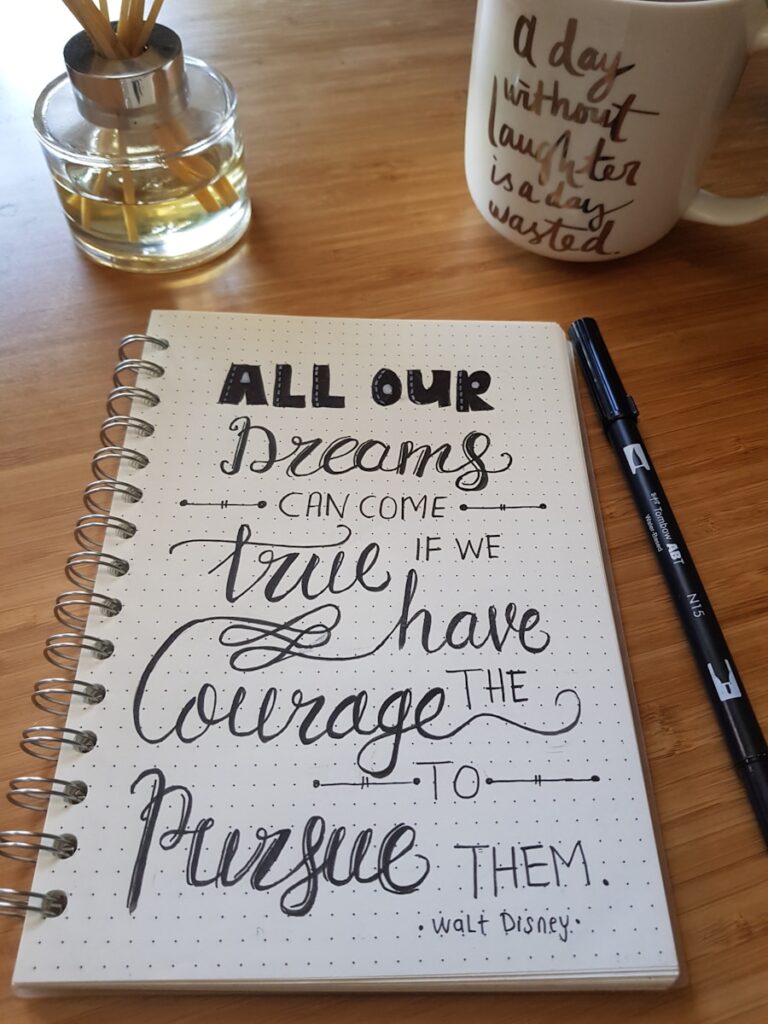 a day
without
laughter
is a day
wasted.
ALL OUR
Dreams
CAN COME
true IF WE
have
Courage THE
TO
Pursue THEM.
• Walt Disney •
Tombow ABT
Water-Based
N15